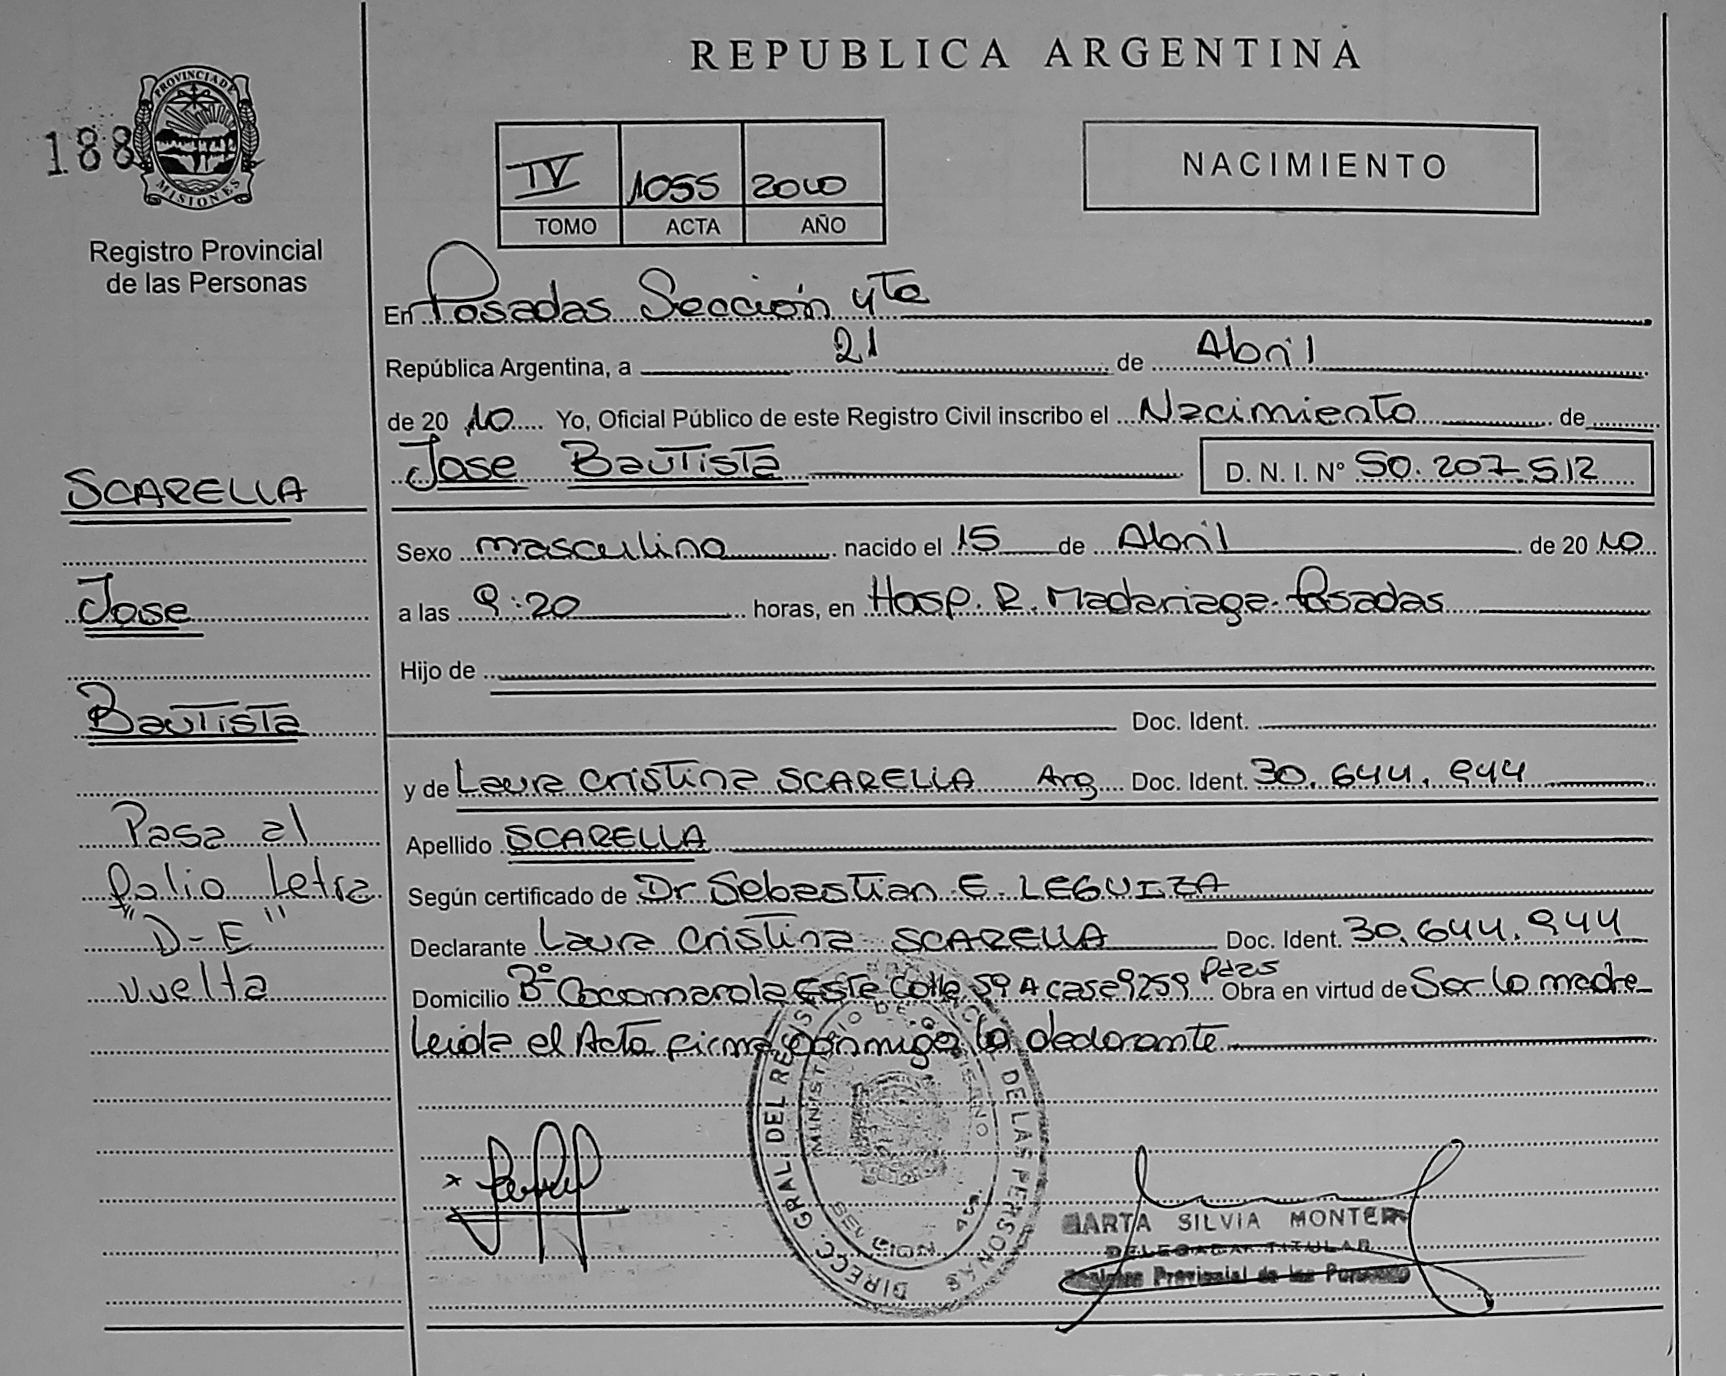 REPUBLICA ARGENTINA
188
PROVINCIA DE
MISIONES
Registro Provincial
de las Personas
IV 1055 2010
TOMO ACTA AÑO
NACIMIENTO
En Posadas Sección 4ta
República Argentina, a 21 de Abril
de 2010 Yo, Oficial Público de este Registro Civil inscribo el Nacimiento de
Jose Bautista D. N. I. Nº 50.207.512
SCARELLA
Jose
Bautista
Pasa al
folio Letra
"D-E"
vuelta
Sexo masculino nacido el 15 de Abril de 2010
a las 9:20 horas, en Hosp. R. Madariaga. Posadas
Hijo de
Doc. Ident.
y de Laura Cristina SCARELLA Arg. Doc. Ident. 30.644.944
Apellido SCARELLA
Según certificado de Dr Sebastian E. LEGUIZA
Declarante Laura Cristina SCARELLA Doc. Ident. 30.644.944
Domicilio Bº Cocomarola Este Calle 59 A casa 9259 Pdas Obra en virtud de Ser la madre
Leida el Acta firma conmigo la declarante
DIRECC. GRAL. DEL REGIST DE LAS PERSONAS
MINISTERIO DE GOBIERNO
MISIONES
MARTA SILVIA MONTER
DELEGADA TITULAR
Registro Provincial de las Personas